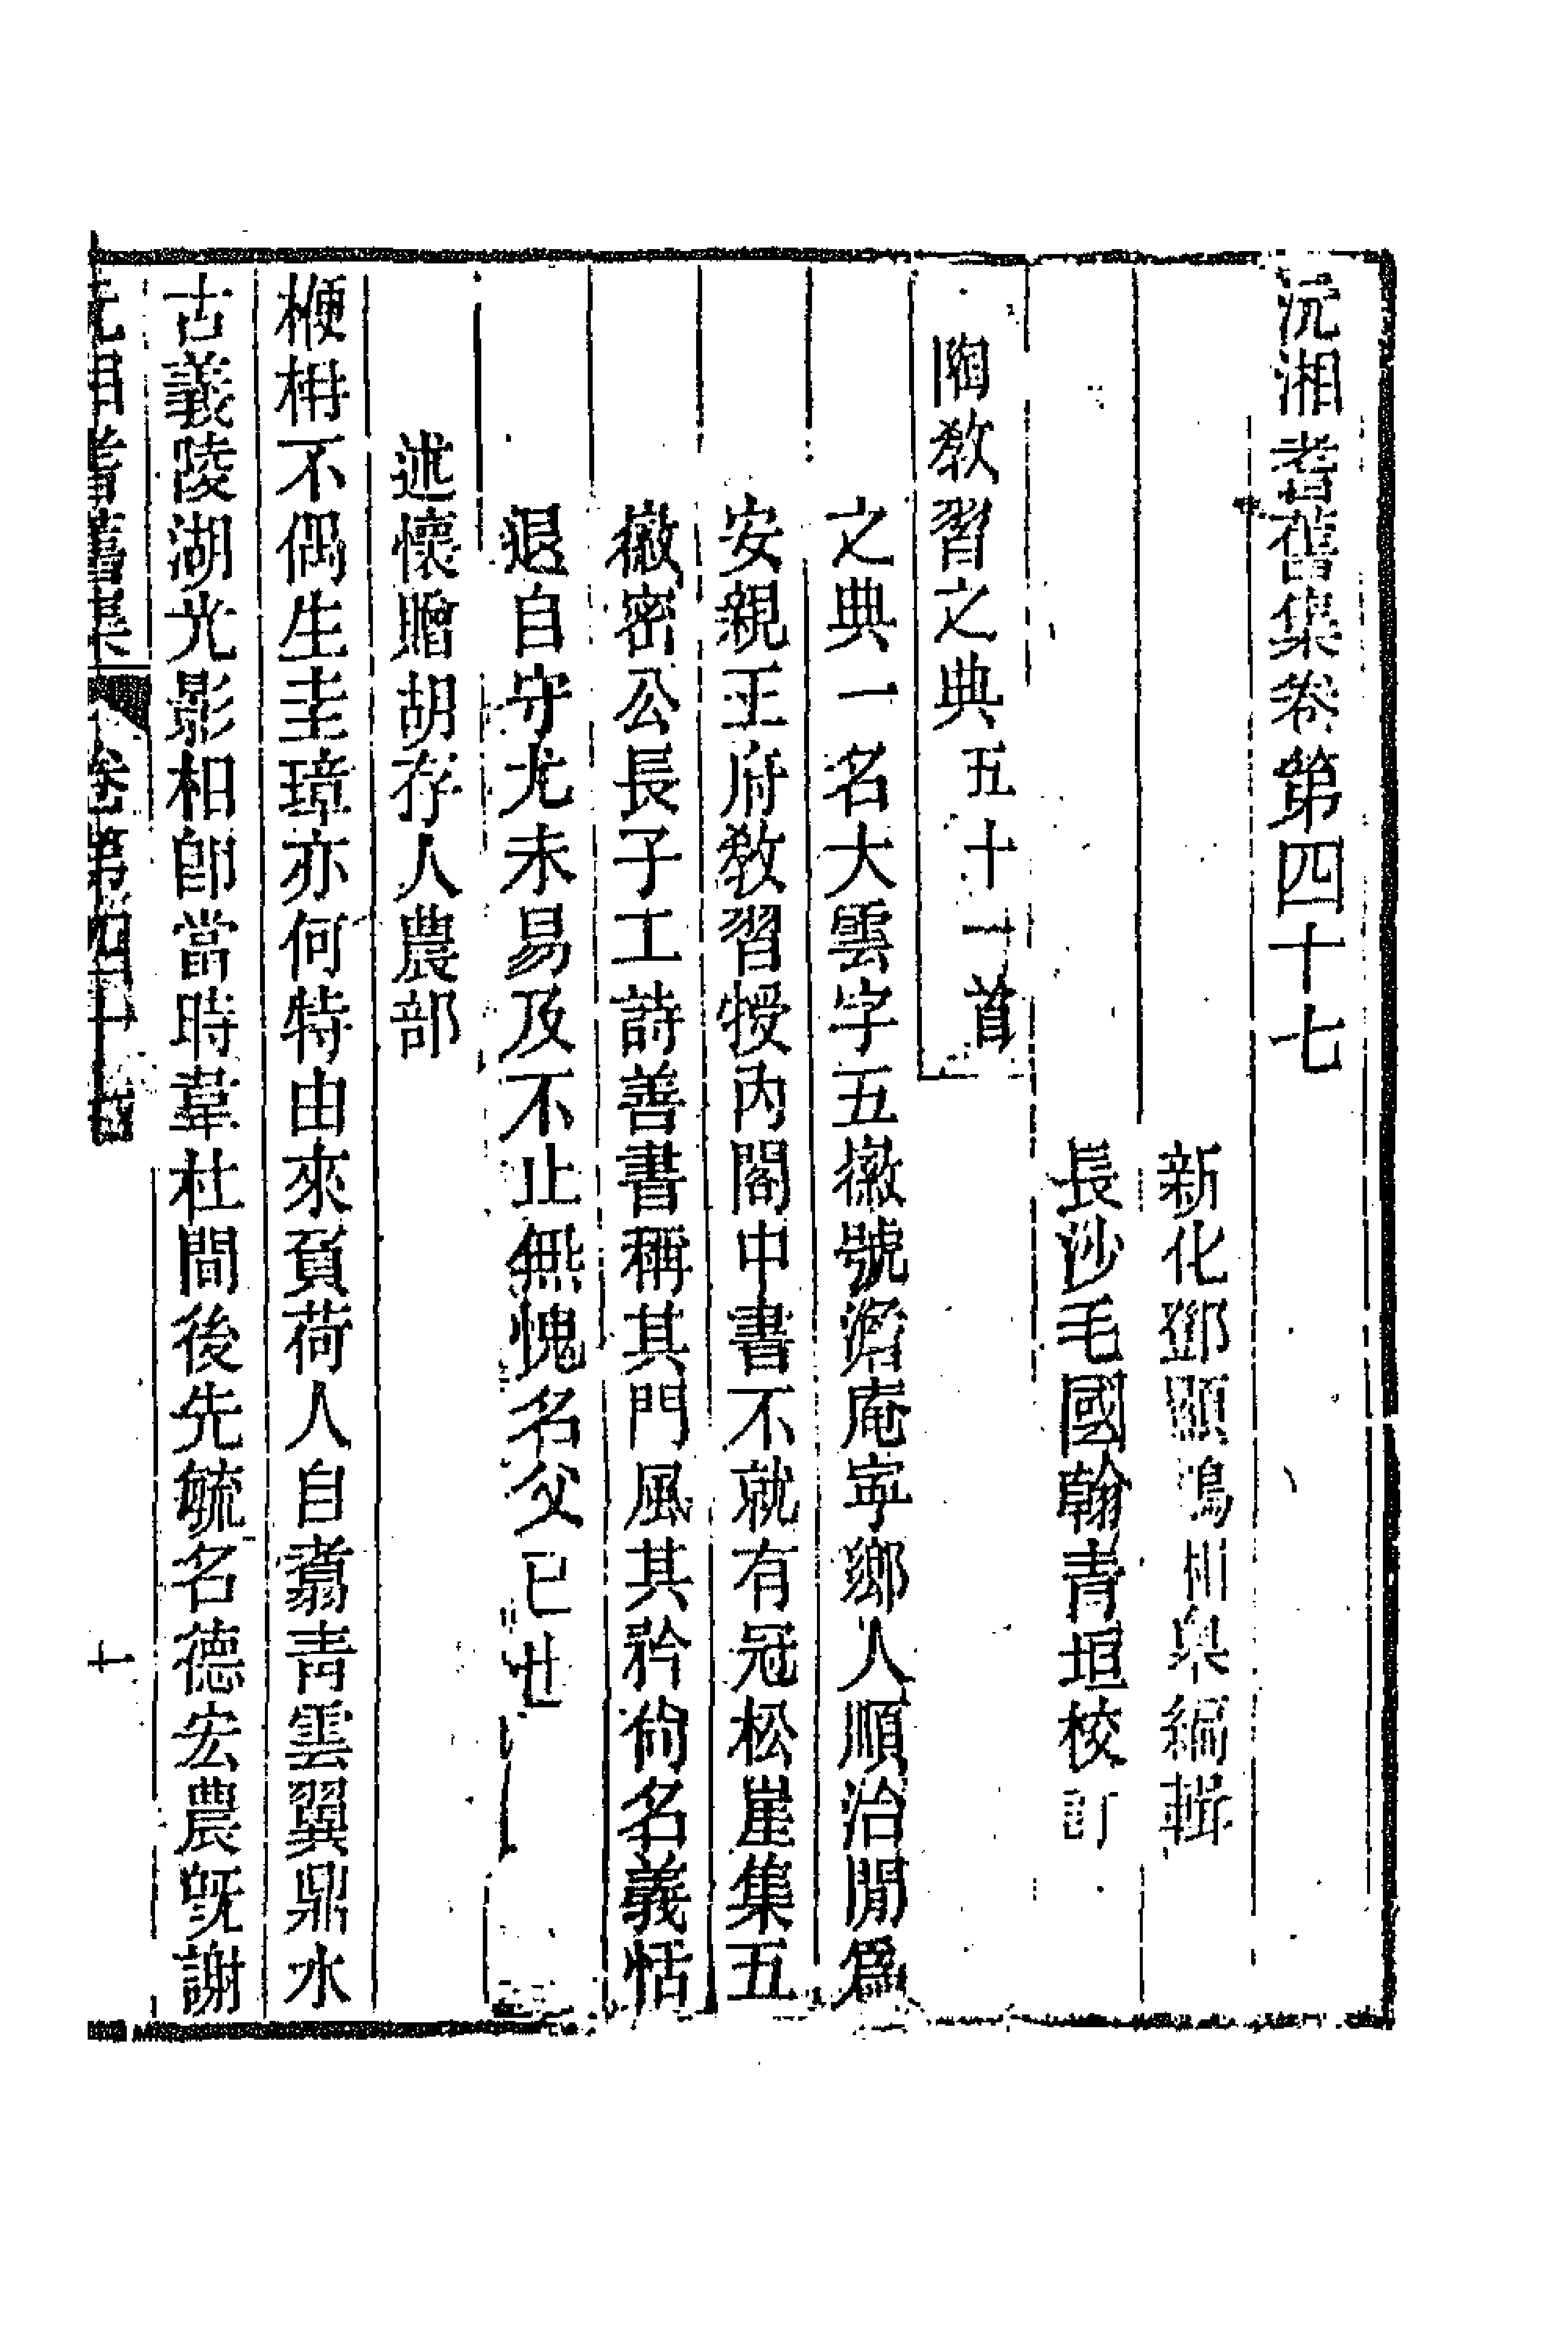 沅湘耆舊集卷第四十七
新化鄧顯鶴湘皐編輯
長沙毛國翰青垣校訂
陶教習之典五十一首
之典一名大雲字五徽號澹庵寧鄉人順治閒爲
安親王府教習授內閣中書不就有冠松崖集五
徽密公長子工詩善書稱其門風其矜尙名義恬
退自守尤未易及不止無愧名父已也
述懷贈胡存人農部
楩枏不偶生圭璋亦何特由來負荷人自翥青雲翼鼎水
古義陵湖光影相卽當時韋杜間後先毓名德宏農旣謝
沅湘耆舊集 卷第四十七 十